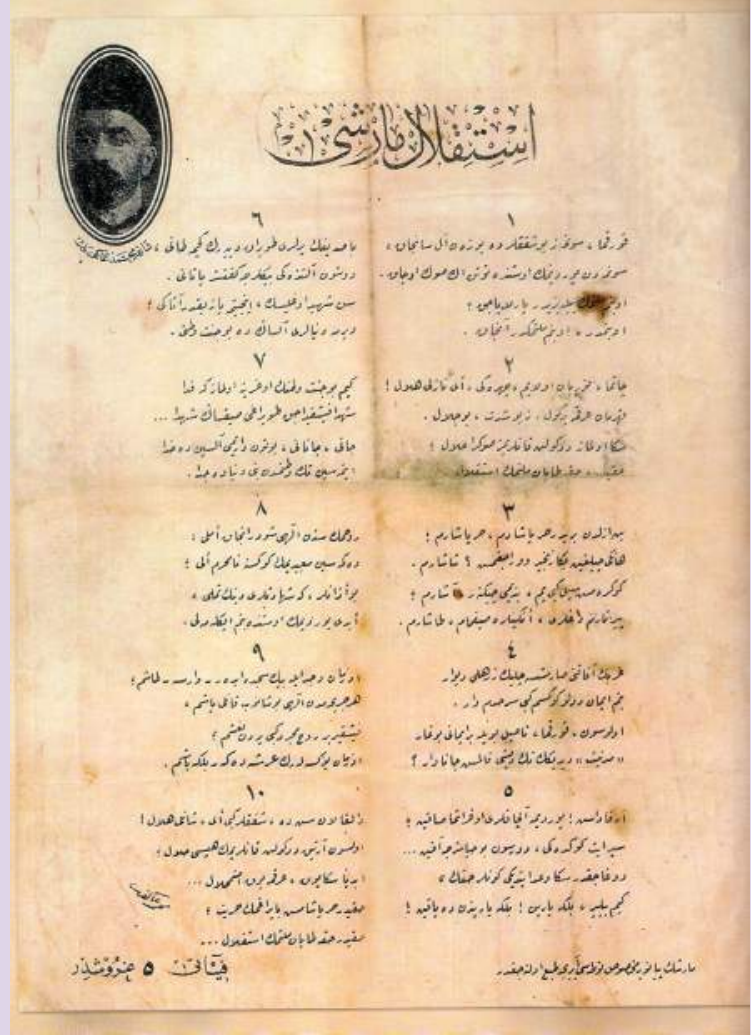 استقلال مارشی
١
قورقما ، سونمز بو شفقلرده یوزن آل سانجاق ،
سونمەدن یوردیمك اوستنده توتن اڭ صوڭ اوجاق .
او بنم ملتمڭ ییلدیزیدر ، پارلایاجق ؛
او بنمدر ، او بنم ملتمڭدر آنجاق .
٢
چاتما ، قربان اولایم ، چهره‌ڭی ، ای نازلی هلال !
قهرمان عرقمه بر گول ؛ نه بو شدت ، بو جلال .
سڭا اولماز دوکولن قانلریمز صوکرا حلال ؛
حقیدر ، حقه طاپان ملتمڭ استقلال
٣
بن ازلدن بریدر حر یاشادم ، حر یاشارم ؛
هانگی چیلغین بڭا زنجیر ووراجقمش ؟ شاشارم .
کوکره‌مش سیل کبی‌یم ، بندیمی چیکنر ، آشارم ؛
ییرتارم داغلری ، انگینلره صیغمام ، طاشارم .
٤
غربڭ آفاقنی صارمشسه چلیك زرهلی دیوار
بنم ایمان دولو کوکسم کبی سرحدم وار .
اولوسون ، قورقما ، ناصل بویله بر ایمانی بوغار
« مدنیت » دیدیڭك تك دیشی قالمش جاناوار ؟
٥
آرقاداش ! یوردیمه آلچاقلری اوغراتما صاقین ؛
سپر ایت گوده‌ڭی ، دورسون بو حیاسزجه آقین ...
دوغاجقدر سڭا وعد ایتدیکی کونلر حقك ؛
کیم بیلیر ، بلکه یارین ! بلکه یاریندن ده یاقین !
٦
باصدیغڭ یرلری طوپراق دییه‌رك کچمه طانی ،
دوشون آلتنده‌کی بیڭلرجه کفنسز یاتانی .
سن شهید اوغلیسڭ ، اینجیتمه یازیقدر آتاڭی ؛
ویرمه دنیالری آلسه‌ڭ ده بو جنت وطنی .
٧
کیم بو جنت وطنڭ اوغرینه اولماز که فدا
شهدا فیشقیراجق طوپراغی صیقسه‌ڭ شهدا ...
جانی ، جانانی ، بوتون واریمی آلسین ده خدا
ایتمه‌سین تك وطنمدن بنی دنیاده جدا .
٨
روحمڭ سندن الٰهی شودر آنجاق املی :
دکمه‌سین معبدیمك کوکسنه نامحرم الی ؛
بو اذانلر ، که شهادتلری دینك تملی ،
ابدی یوردیمك اوستنده بنم ایکله‌ملی .
٩
او زمان وجد ایله بیڭ سجده ایدر ـ وارسه ـ طاشم ؛
هر جریحه‌مدن الٰهی بوشانوب قانلی یاشم ،
فیشقیریر روح مجرد کبی یردن نعشم ؛
او زمان یوکسله‌رك عرشه دکر بلکه باشم .
١٠
دالغالان سن ده ، شفقلر کبی ای ، شانلی هلال !
اولسون آرتیق دوکولن قانلریمڭ هپسی حلال ؛
ابدیاً سڭا یوق ، عرقمه یوق اضمحلال ...
حقیدر حر یاشامش بایراغمڭ حریت ؛
حقیدر حقه طاپان ملتمڭ استقلال ...
مارشك پیانویه مخصوص نوطه‌سی آیری طبع اوله‌جقدر
فیئاتی ٥ غروشدر